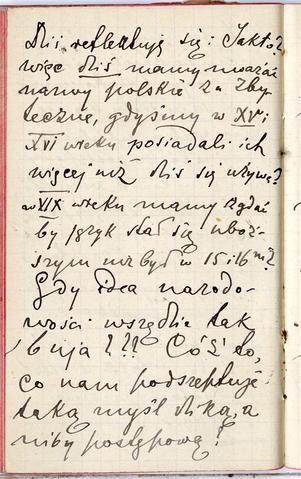 Dziś reflektują się: Jaktóż
więc dziś mamy uważać
nazwy polskie za zby-
teczne, gdyśmy w XV i
XVI wieku posiadali ich
więcej niż dziś się używa?
w XIX wieku mamy żądać
by język stał się uboż-
szym niż był w 15 i 16 m?
Gdy idea narodo-
wości wszędzie tak
buja!?? Cóż to,
co nam podszeptuje
taką myśl dziką, a
niby postępową?